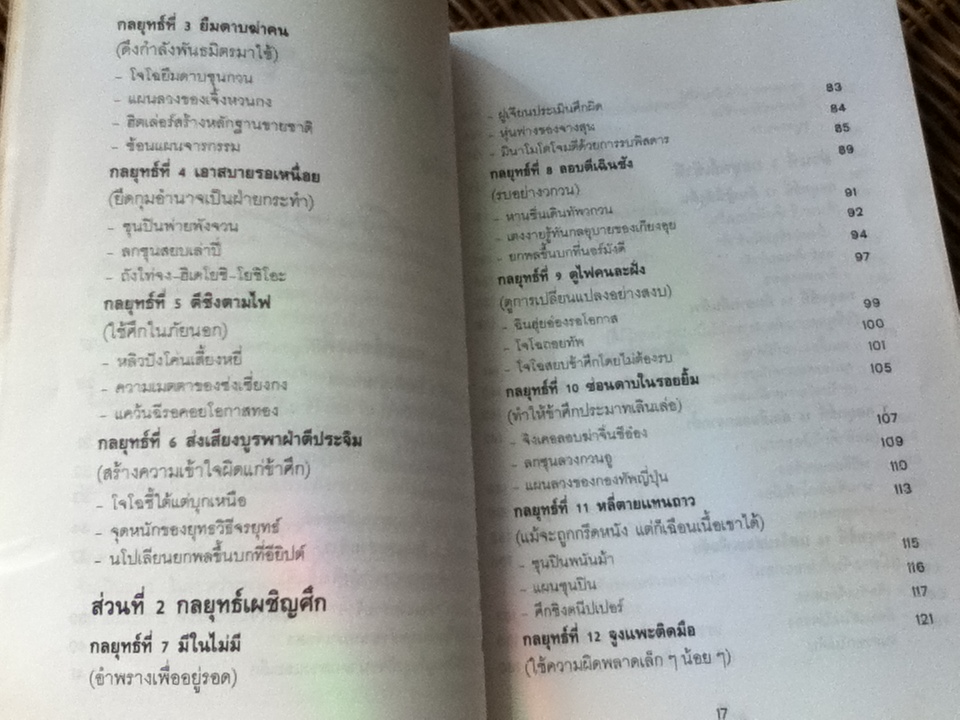 กลยุทธ์ที่ 3 ยืมดาบฆ่าคน
(ดึงกำลังพันธมิตรมาใช้)
- โจโฉยืมดาบซุนกวน
- แผนลวงของเจิ้งหวนกง
- ฮิตเล่อร์สร้างหลักฐานขายชาติ
- ซ้อนแผนจารกรรม
กลยุทธ์ที่ 4 เอาสบายรอเหนื่อย
(ยึดกุมอำนาจเป็นฝ่ายกระทำ)
- ซุนปินพ่ายพังจวน
- ลกซุนสยบเล่าปี่
- ถังไท่จง-ฮิเดโยชิ-โยชิโอะ
กลยุทธ์ที่ 5 ตีชิงตามไฟ
(ใช้ศึกในภัยนอก)
- หลิวปังโค่นเสี้ยงหยี่
- ความเมตตาของซ่งเซี่ยงกง
- แคว้นฉีรอคอยโอกาสทอง
กลยุทธ์ที่ 6 ส่งเสียงบูรพาฝ่าตีประจิม
(สร้างความเข้าใจผิดแก่ข้าศึก)
- โจโฉชี้ใต้แต่บุกเหนือ
- จุดหนักของยุทธวิธีจรยุทธ์
- นโปเลียนยกพลขึ้นบกที่อียิปต์
ส่วนที่ 2 กลยุทธ์เผชิญศึก
กลยุทธ์ที่ 7 มีในไม่มี
(อำพรางเพื่ออยู่รอด)
- ฝูเจียนประเมินศึกผิด 83
- หุ่นฟางของจางสุน 84
- มินาโมโตโจมตีด้วยการรบพิสดาร 85
กลยุทธ์ที่ 8 ลอบตีเฉินชัง 89
(รบอย่างวกวน)
- หานซิ่นเดินทัพวกวน 91
- เตงงายรู้ทันกลอุบายของเกียงอุย 92
- ยกพลขึ้นบกที่นอร์มังดี 94
กลยุทธ์ที่ 9 ดูไฟคนละฝั่ง 97
(ดูการเปลี่ยนแปลงอย่างสงบ)
- ฉินฮุ่ยอ๋องรอโอกาส 99
- โจโฉถอยทัพ 100
- โจโฉสยบข้าศึกโดยไม่ต้องรบ 101
กลยุทธ์ที่ 10 ซ่อนดาบในรอยยิ้ม 105
(ทำให้ข้าศึกประมาทเลินเล่อ)
- จิงเคอลอบฆ่าจิ๋นซีอ๋อง 107
- ลกซุนลวงกวนอู 109
- แผนลวงของกองทัพญี่ปุ่น 110
กลยุทธ์ที่ 11 หลี่ตายแทนถาว 113
(แม้จะถูกกรีดหนัง แต่ก็เฉือนเนื้อเขาได้)
- ซุนปินพนันม้า 115
- แผนซุนปิน 116
- ศึกชิงดนีปเปอร์ 117
กลยุทธ์ที่ 12 จูงแพะติดมือ 121
(ใช้ความผิดพลาดเล็ก ๆ น้อย ๆ)
17